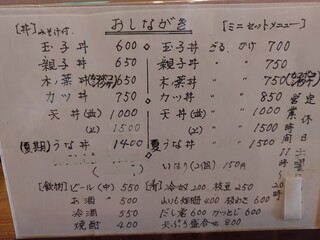 おしながき
[丼] みそ汁付.
玉子丼 600
親子丼 650
木ノ葉丼 650
カツ丼 750
天丼(並) 1000
(上) 1500
(夏期)うな丼 1400
[ミニセットメニュー]
玉子丼 ざる、かけ 700
親子丼 〃 〃 750
木ノ葉丼 〃 〃 750
カツ丼 〃 〃 850
天丼(並) 〃 〃 1000
(上) 〃 〃 1500
うな丼 〃 〃 1400
いなり(2個) 150円
[飲物] ビール(中) 550
お酒 500
冷酒 550
焼酎 400
冷奴 200 枝豆 250
だし巻 600
天ぷら盛合せ 800
営業時間
定休日